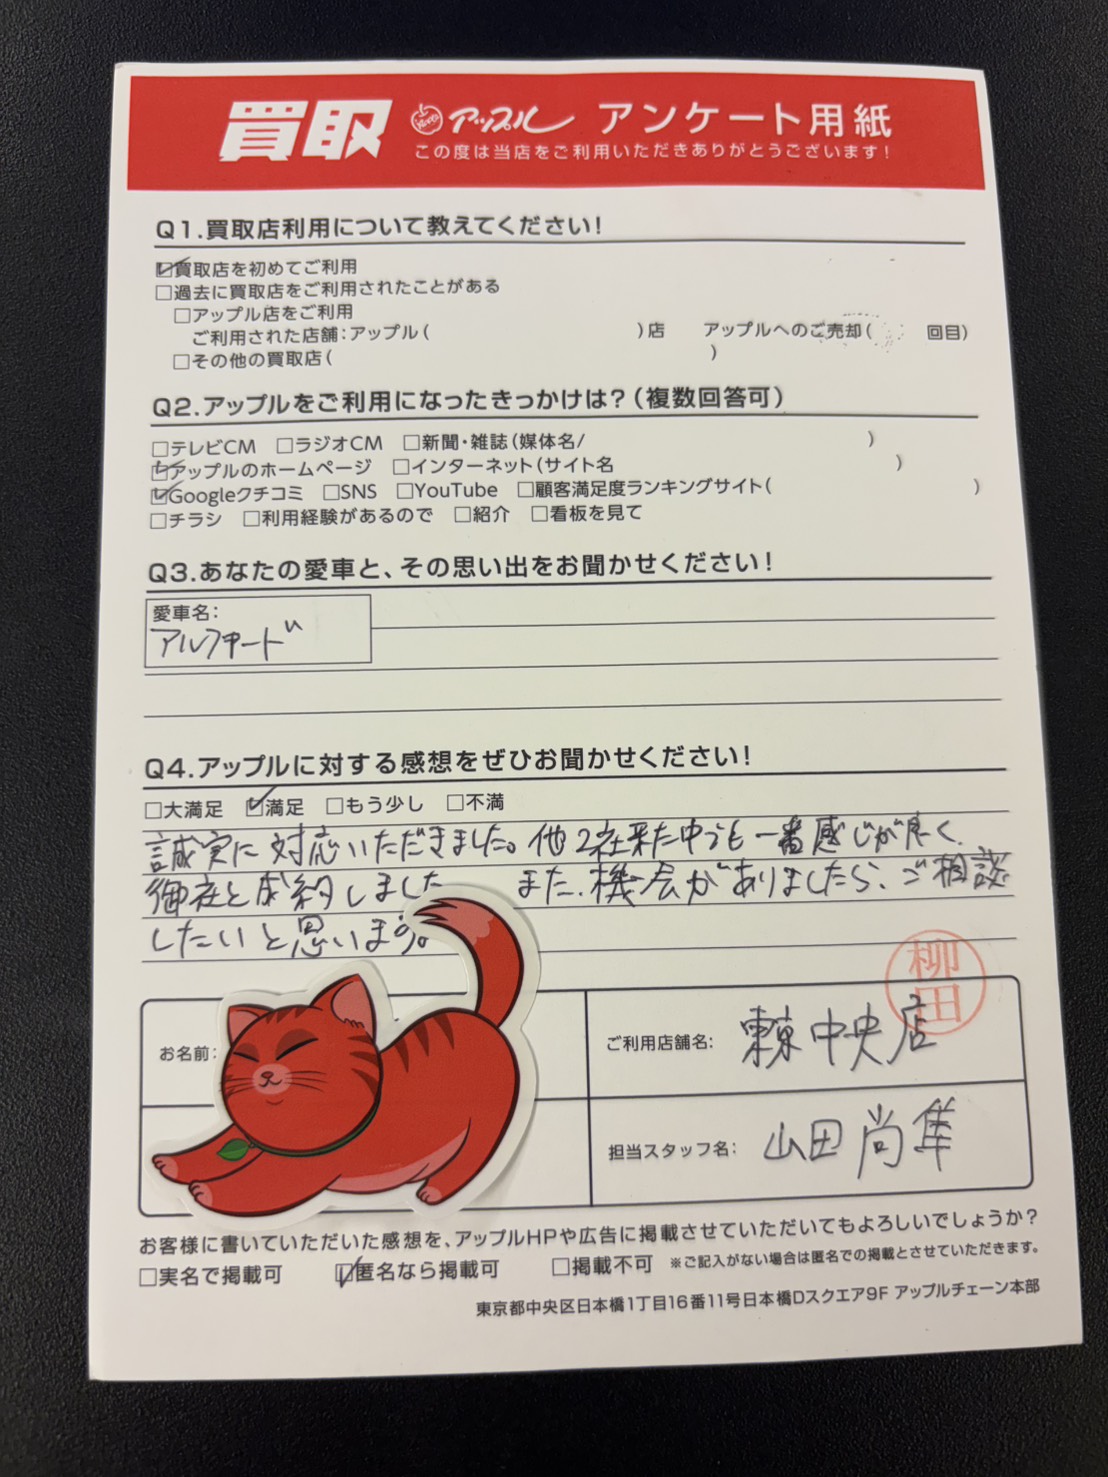 買取 アップル アンケート用紙
この度は当店をご利用いただきありがとうございます!
Q1.買取店利用について教えてください!
☑買取店を初めてご利用
□過去に買取店をご利用されたことがある
□アップル店をご利用
ご利用された店舗:アップル( )店 アップルへのご売却( 回目)
□その他の買取店( )
Q2.アップルをご利用になったきっかけは?(複数回答可)
□テレビCM □ラジオCM □新聞・雑誌(媒体名/ )
☑アップルのホームページ □インターネット(サイト名 )
☑Googleクチコミ □SNS □YouTube □顧客満足度ランキングサイト( )
□チラシ □利用経験があるので □紹介 □看板を見て
Q3.あなたの愛車と、その思い出をお聞かせください!
愛車名:
アルファード
Q4.アップルに対する感想をぜひお聞かせください!
□大満足 ☑満足 □もう少し □不満
誠実に対応いただきました。他2社来た中でも一番感じが良く、
御社と成約しました また、機会がありましたら、ご相談
したいと思います。
柳田
お名前:
ご利用店舗名: 東中央店
担当スタッフ名: 山田 尚隼
お客様に書いていただいた感想を、アップルHPや広告に掲載させていただいてもよろしいでしょうか?
□実名で掲載可 ☑匿名なら掲載可 □掲載不可 ※ご記入がない場合は匿名での掲載とさせていただきます。
東京都中央区日本橋1丁目16番11号日本橋Dスクエア9F アップルチェーン本部